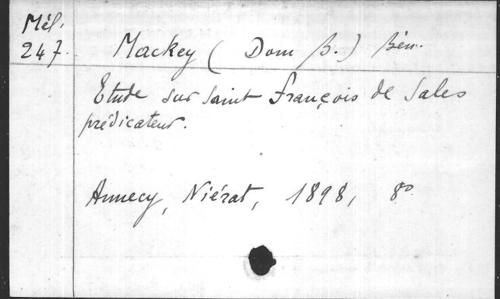 Mél.
247. Mackey (Dom B.) Bén.
Etude sur Saint François de Sales
prédicateur.
Annecy, Niérat, 1898, 8º